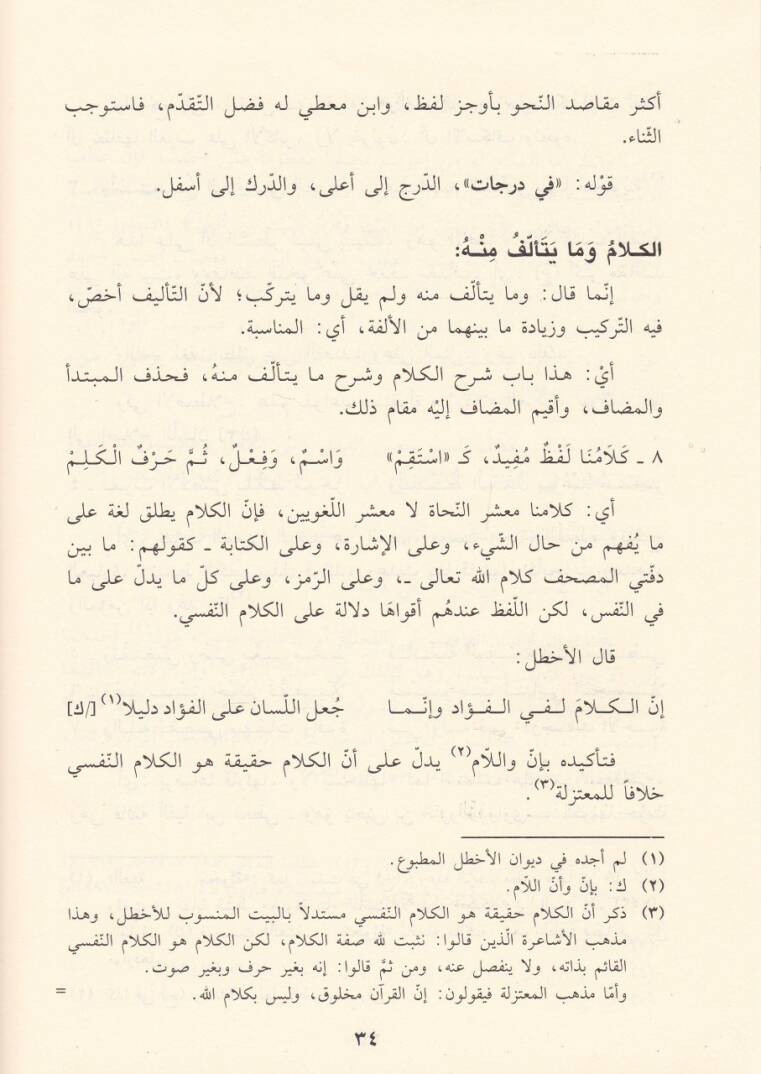 أكثر مقاصد النّحو بأوجز لفظ، وابن معطي له فضل التّقدّم، فاستوجب
الثّناء.
قوْله: «في درجات»، الدّرج إلى أعلى، والدّرك إلى أسفل.
الكلامُ وَمَا يَتَألّفُ مِنْهُ:
إنّما قال: وما يتألّف منه ولم يقل وما يتركّب؛ لأنّ التّأليف أخصّ،
فيه التّركيب وزيادة ما بينهما من الألفة، أي: المناسبة.
أيْ: هذا باب شرح الكلام وشرح ما يتألّف منهُ، فحذف المبتدأ
والمضاف، وأقيم المضاف إليْه مقام ذلك.
٨ ـ كَلَامُنَا لَفْظٌ مُفِيدٌ، كَـ «اسْتَقِمْ» وَاسْمٌ، وَفِعْلٌ، ثُمَّ حَرْفٌ الْكَلِمْ
أي: كلامنا معشر النّحاة لا معشر اللّغويين، فإنّ الكلام يطلق لغة على
ما يُفهم من حال الشّيء، وعلى الإشارة، وعلى الكتابة ـ كقولهم: ما بين
دفّتي المصحف كلام الله تعالى ـ، وعلى الرّمز، وعلى كلّ ما يدلّ على ما
في النّفس، لكن اللّفظ عندهُم أقواهَا دلالة على الكلام النّفسي.
قال الأخطل:
إنّ الكلامَ لفي الفؤاد وإنّما جُعل اللّسان على الفؤاد دليلا(١) [/ك]
فتأكيده بإنّ واللّام(٢) يدلّ على أنّ الكلام حقيقة هو الكلام النّفسي
خلافاً للمعتزلة(٣).
(١) لم أجده في ديوان الأخطل المطبوع.
(٢) ك: بإنّ وأنّ اللّام.
(٣) ذكر أنّ الكلام حقيقة هو الكلام النّفسي مستدلاً بالبيت المنسوب للأخطل، وهذا
مذهب الأشاعرة الّذين قالوا: نثبت لله صفة الكلام، لكن الكلام هو الكلام النّفسي
القائم بذاته، ولا ينفصل عنه، ومن ثمَّ قالوا: إنه بغير حرف وبغير صوت.
وأمّا مذهب المعتزلة فيقولون: إنّ القرآن مخلوق، وليس بكلام الله. =
٣٤